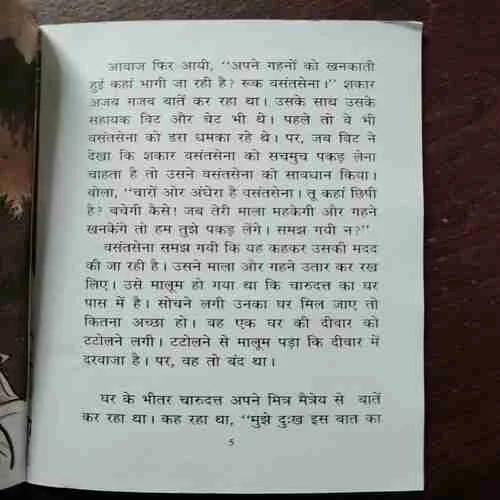 आवाज फिर आयी, “अपने गहनों को खनकाती
हुई कहां भागी जा रही है? रूक वसंतसेना।” शकार
अजब गजब बातें कर रहा था। उसके साथ उसके
सहायक विट और चेट भी थे। पहले तो वे भी
वसंतसेना को डरा धमका रहे थे। पर, जब विट ने
देखा कि शकार वसंतसेना को सचमुच पकड़ लेना
चाहता है तो उसने वसंतसेना को सावधान किया।
बोला, “चारों ओर अंधेरा है वसंतसेना। तू कहां छिपी
है? बचेगी कैसे! जब तेरी माला महकेगी और गहने
खनकेंगे तो हम तुझे पकड़ लेंगे। समझ गयी न?”
वसंतसेना समझ गयी कि यह कहकर उसकी मदद
की जा रही है। उसने माला और गहने उतार कर रख
लिए। उसे मालूम हो गया था कि चारुदत्त का घर
पास में है। सोचने लगी उनका घर मिल जाए तो
कितना अच्छा हो। वह एक घर की दीवार को
टटोलने लगी। टटोलने से मालूम पड़ा कि दीवार में
दरवाजा है। पर, वह तो बंद था।
घर के भीतर चारुदत्त अपने मित्र मैत्रेय से बातें
कर रहा था। कह रहा था, “मुझे दुःख इस बात का
5